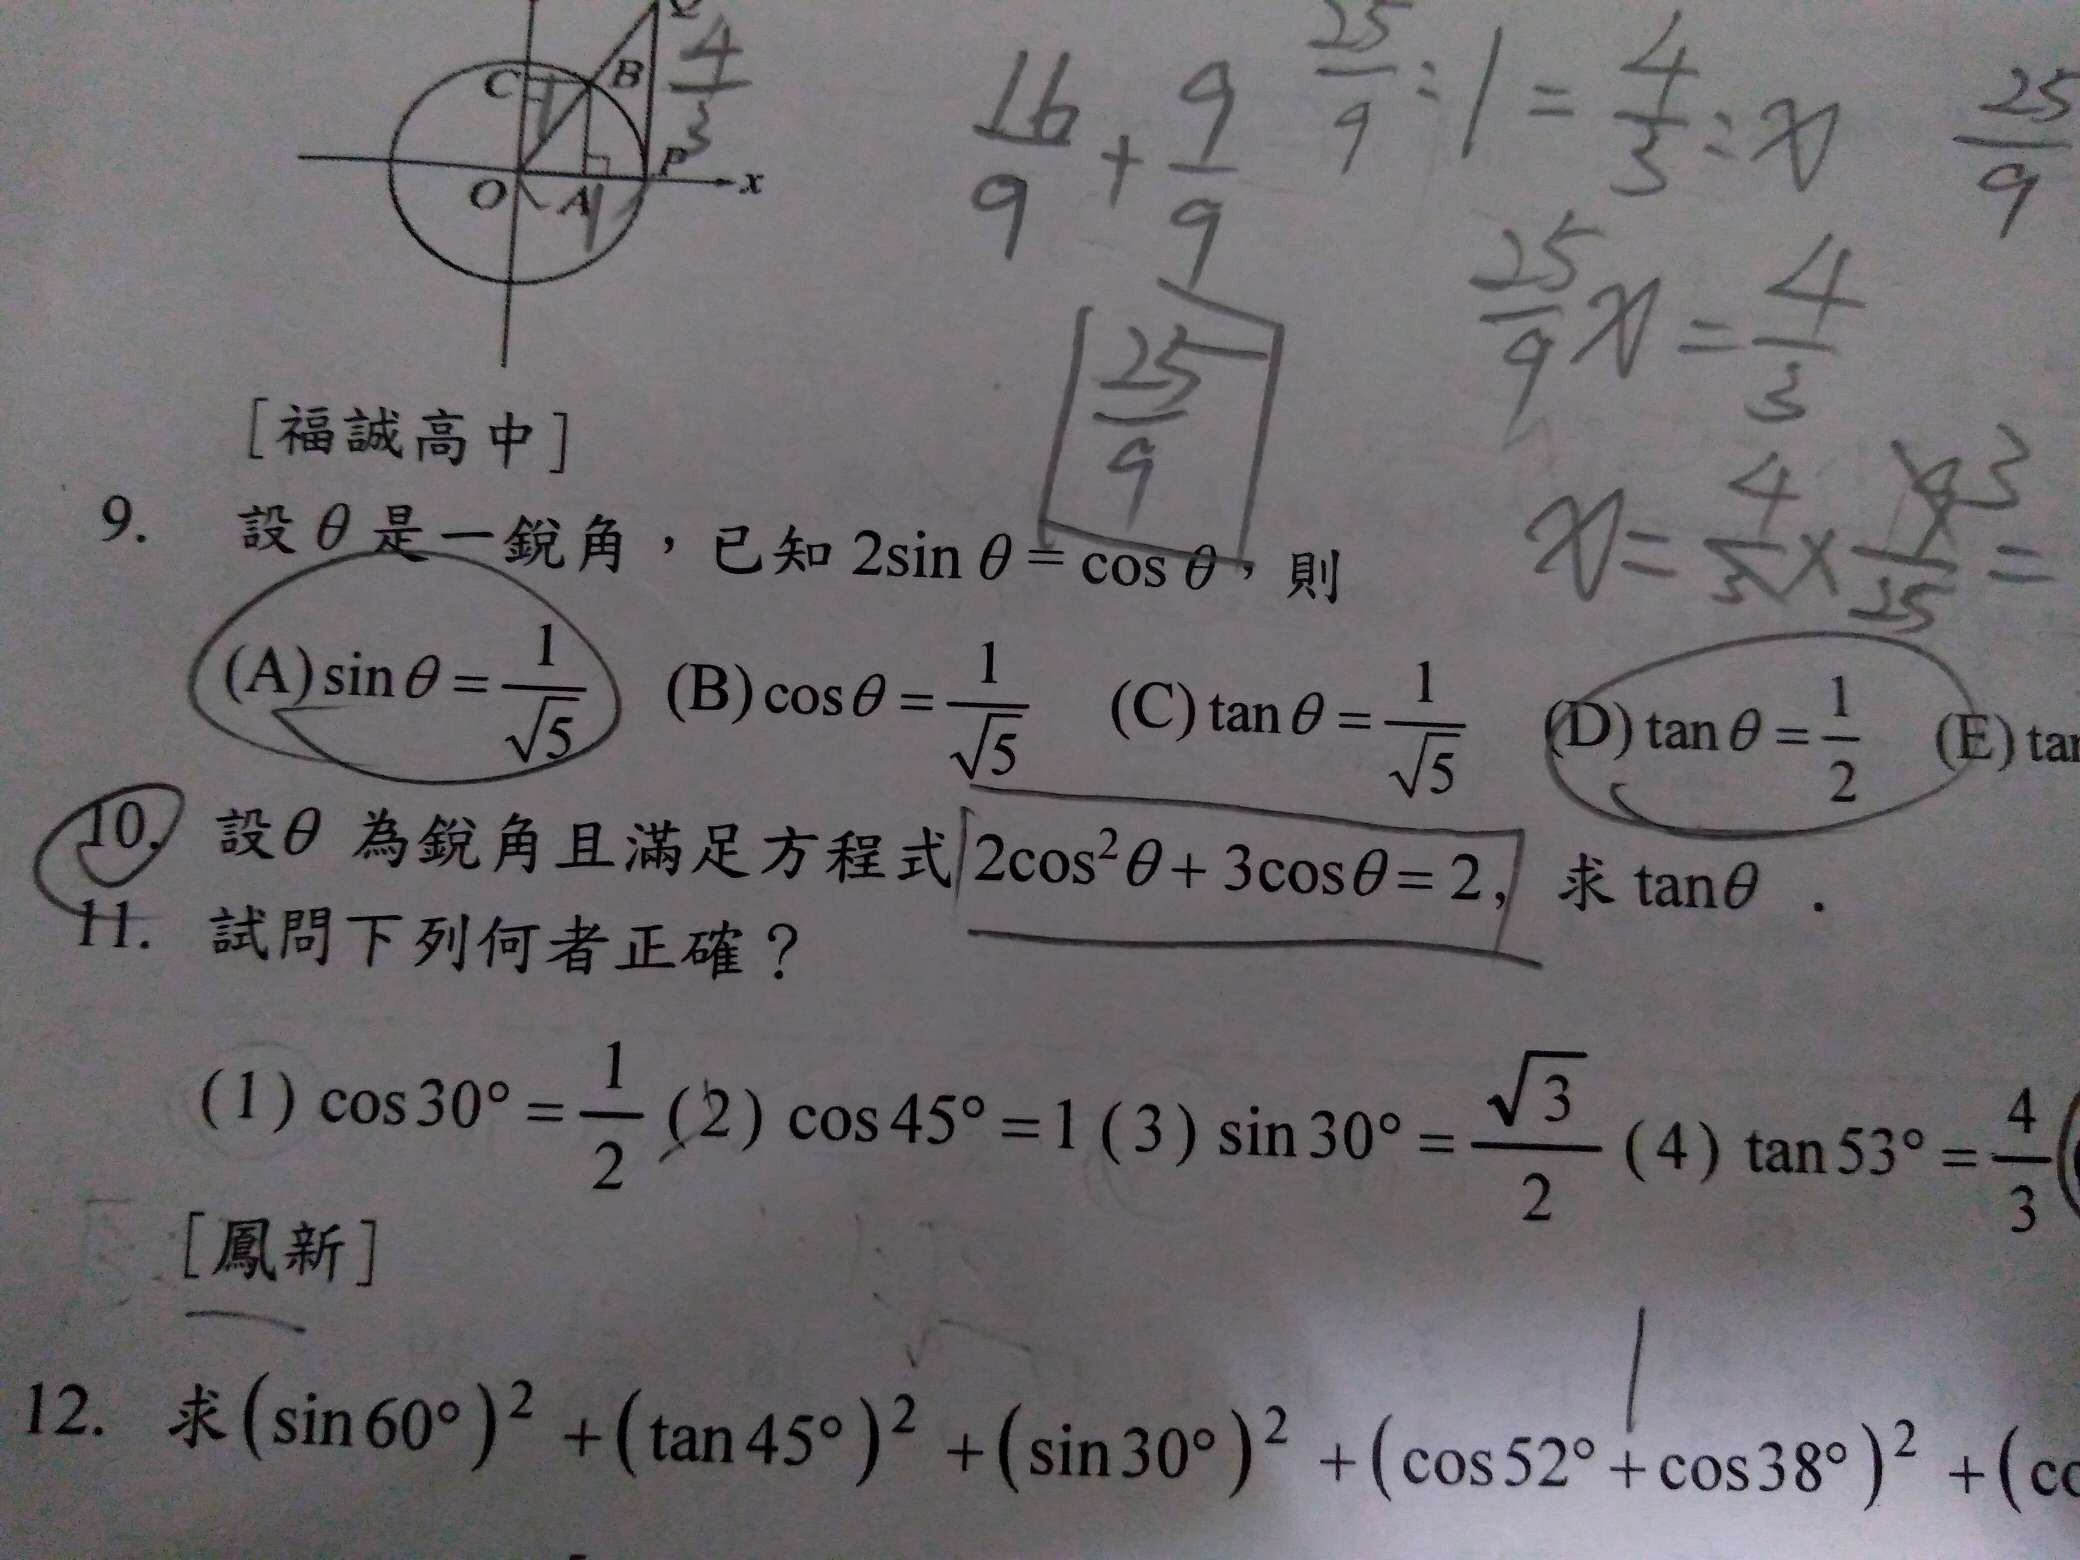 C B 4/3
O A 1 P x
16/9 + 9/9 25/9 : 1 = 4/3 : x 25/9
25/9 25/9 x = 4/3
x = 4/3 × 9/25 = 3
[福誠高中]
9. 設 θ 是一銳角，已知 2sin θ = cos θ，則
(A) sin θ = 1/√5 (B) cos θ = 1/√5 (C) tan θ = 1/√5 (D) tan θ = 1/2 (E) tan
10. 設θ 為銳角且滿足方程式 2cos²θ + 3cosθ = 2, 求 tanθ .
11. 試問下列何者正確？
(1) cos30° = 1/2 (2) cos45° = 1 (3) sin30° = √3/2 (4) tan53° = 4/3 (
[鳳新]
12. 求(sin60°)² + (tan45°)² + (sin30°)² + (cos52° + cos38°)² + (co